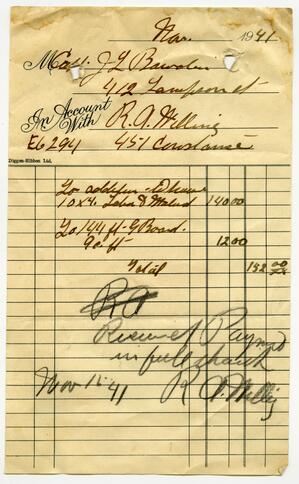 Nov. 1941
M Capt. J L Bowden
412 Lampson st
In Account With R. A. Willing
E6294 451 Constance
Diggon-Hibben Ltd.
To addition
10 x 4. Labor & Material 140 00
To 144 ft. G Board.
9c. ft 12 00
Total 152 00
R A
Received Payment
in full thanks
Nov 15 41 R A. Willing